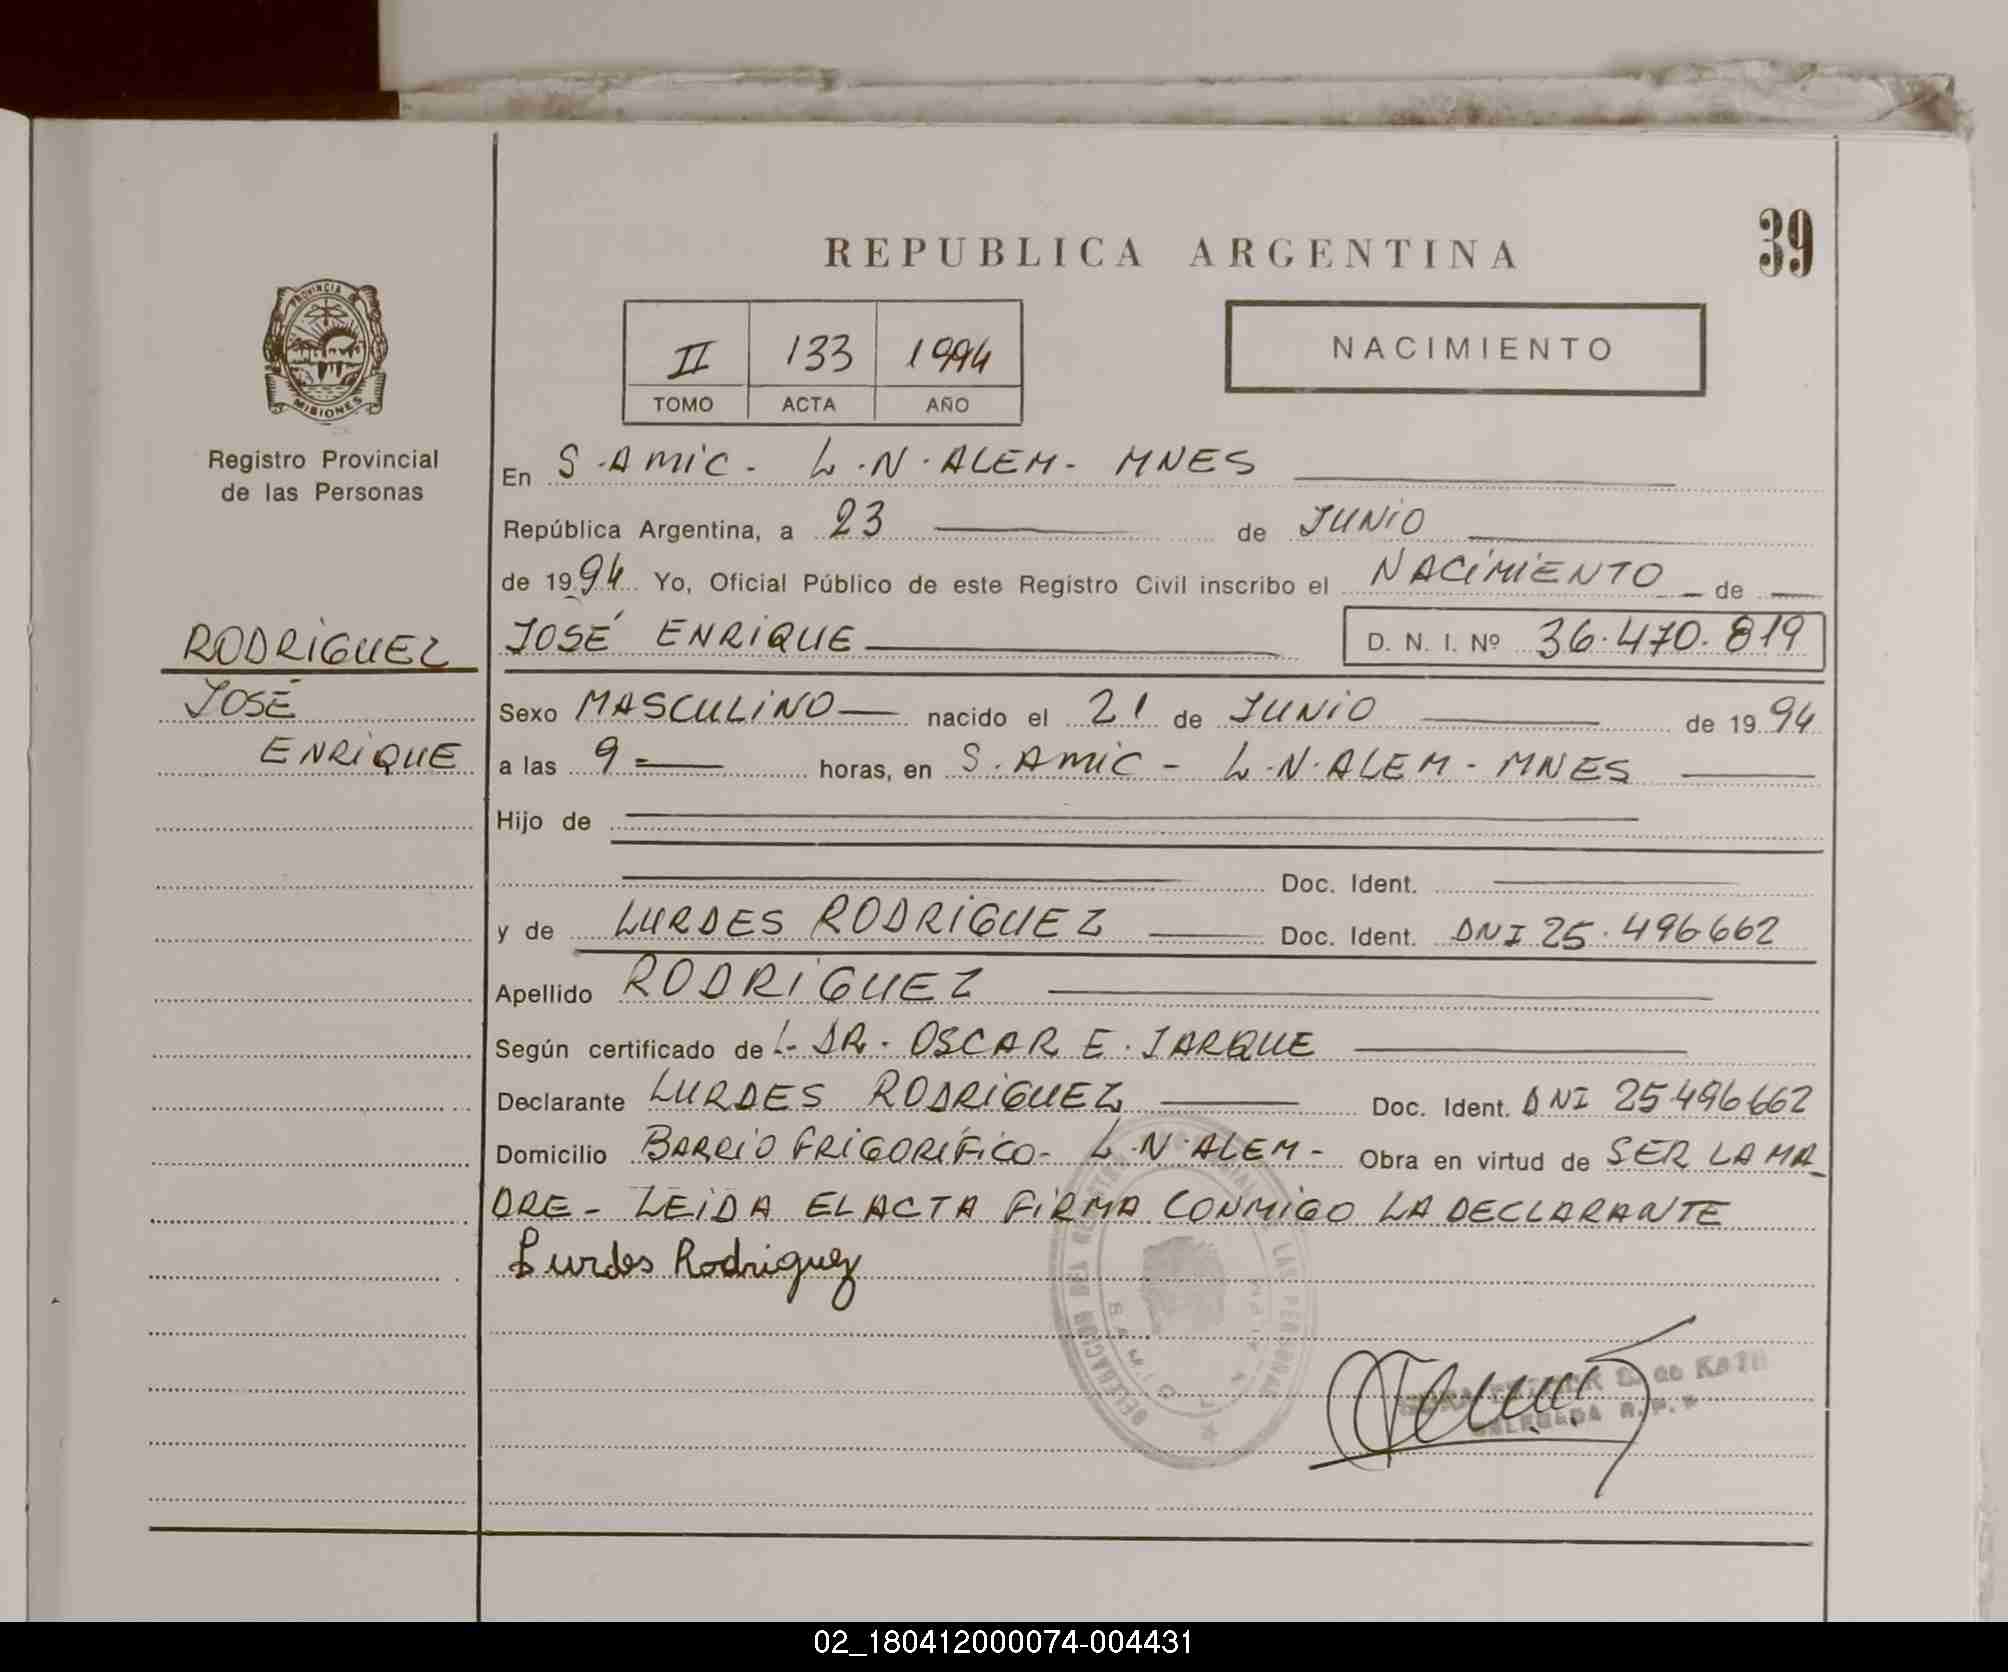 39
REPUBLICA ARGENTINA
PROVINCIA DE
MISIONES
Registro Provincial
de las Personas
II 133 1994
TOMO ACTA AÑO
NACIMIENTO
En S. AMIC - L.N. ALEM - MNES
República Argentina, a 23 de JUNIO
de 1994 Yo, Oficial Público de este Registro Civil inscribo el NACIMIENTO de
RODRIGUEZ
JOSÉ
ENRIQUE
JOSÉ ENRIQUE D. N. I. Nº 36.470.819
Sexo MASCULINO nacido el 21 de JUNIO de 1994
a las 9 horas, en S. AMIC - L.N. ALEM - MNES
Hijo de
Doc. Ident.
y de LURDES RODRIGUEZ Doc. Ident. DNI 25.496662
Apellido RODRIGUEZ
Según certificado de L- DR. OSCAR E. JARQUE
Declarante LURDES RODRIGUEZ Doc. Ident. DNI 25496662
Domicilio BARRIO FRIGORIFICO - L.N. ALEM - Obra en virtud de SER LA MA_
DRE - LEIDA EL ACTA FIRMA CONMIGO LA DECLARANTE
Lurdes Rodriguez
DELEGACION DEL LAS PERSONAS
DELEGADA R.P.P
02_180412000074-004431